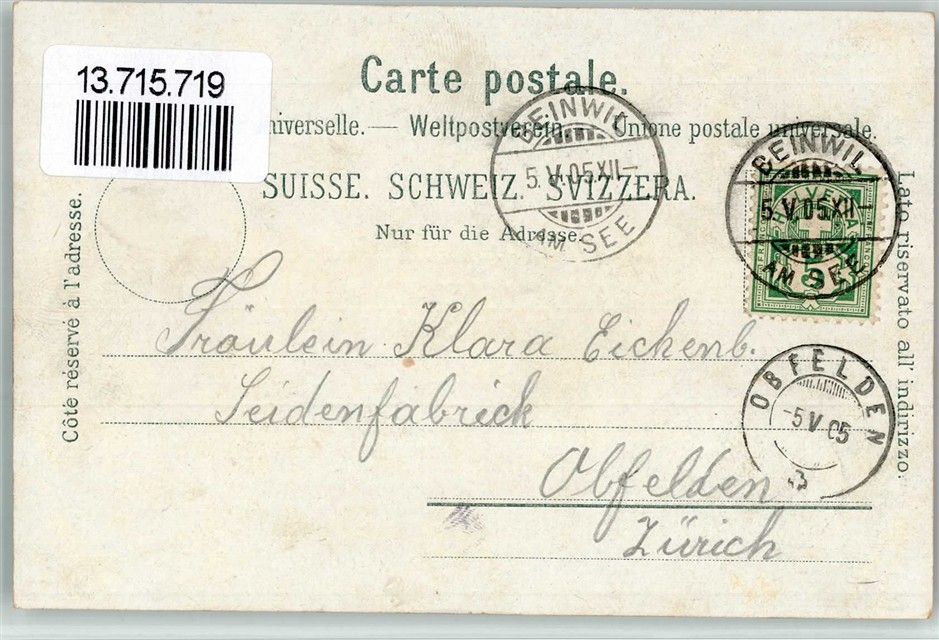 13.715.719
Carte postale.
niverselle. — Weltpostverein. — Unione postale universale.
SUISSE. SCHWEIZ. SVIZZERA.
Nur für die Adresse.
Côté réservé à l'adresse.
Lato riservato all' indirizzo.
BEINWIL
5.V.05.XII—
AM SEE
BEINWIL
5.V.05.XII—
AM SEE
HELVETIA
5
OBFELDEN
-5 V 05
Fräulein Klara Eichenb.
Seidenfabrick
Obfelden
Zürich